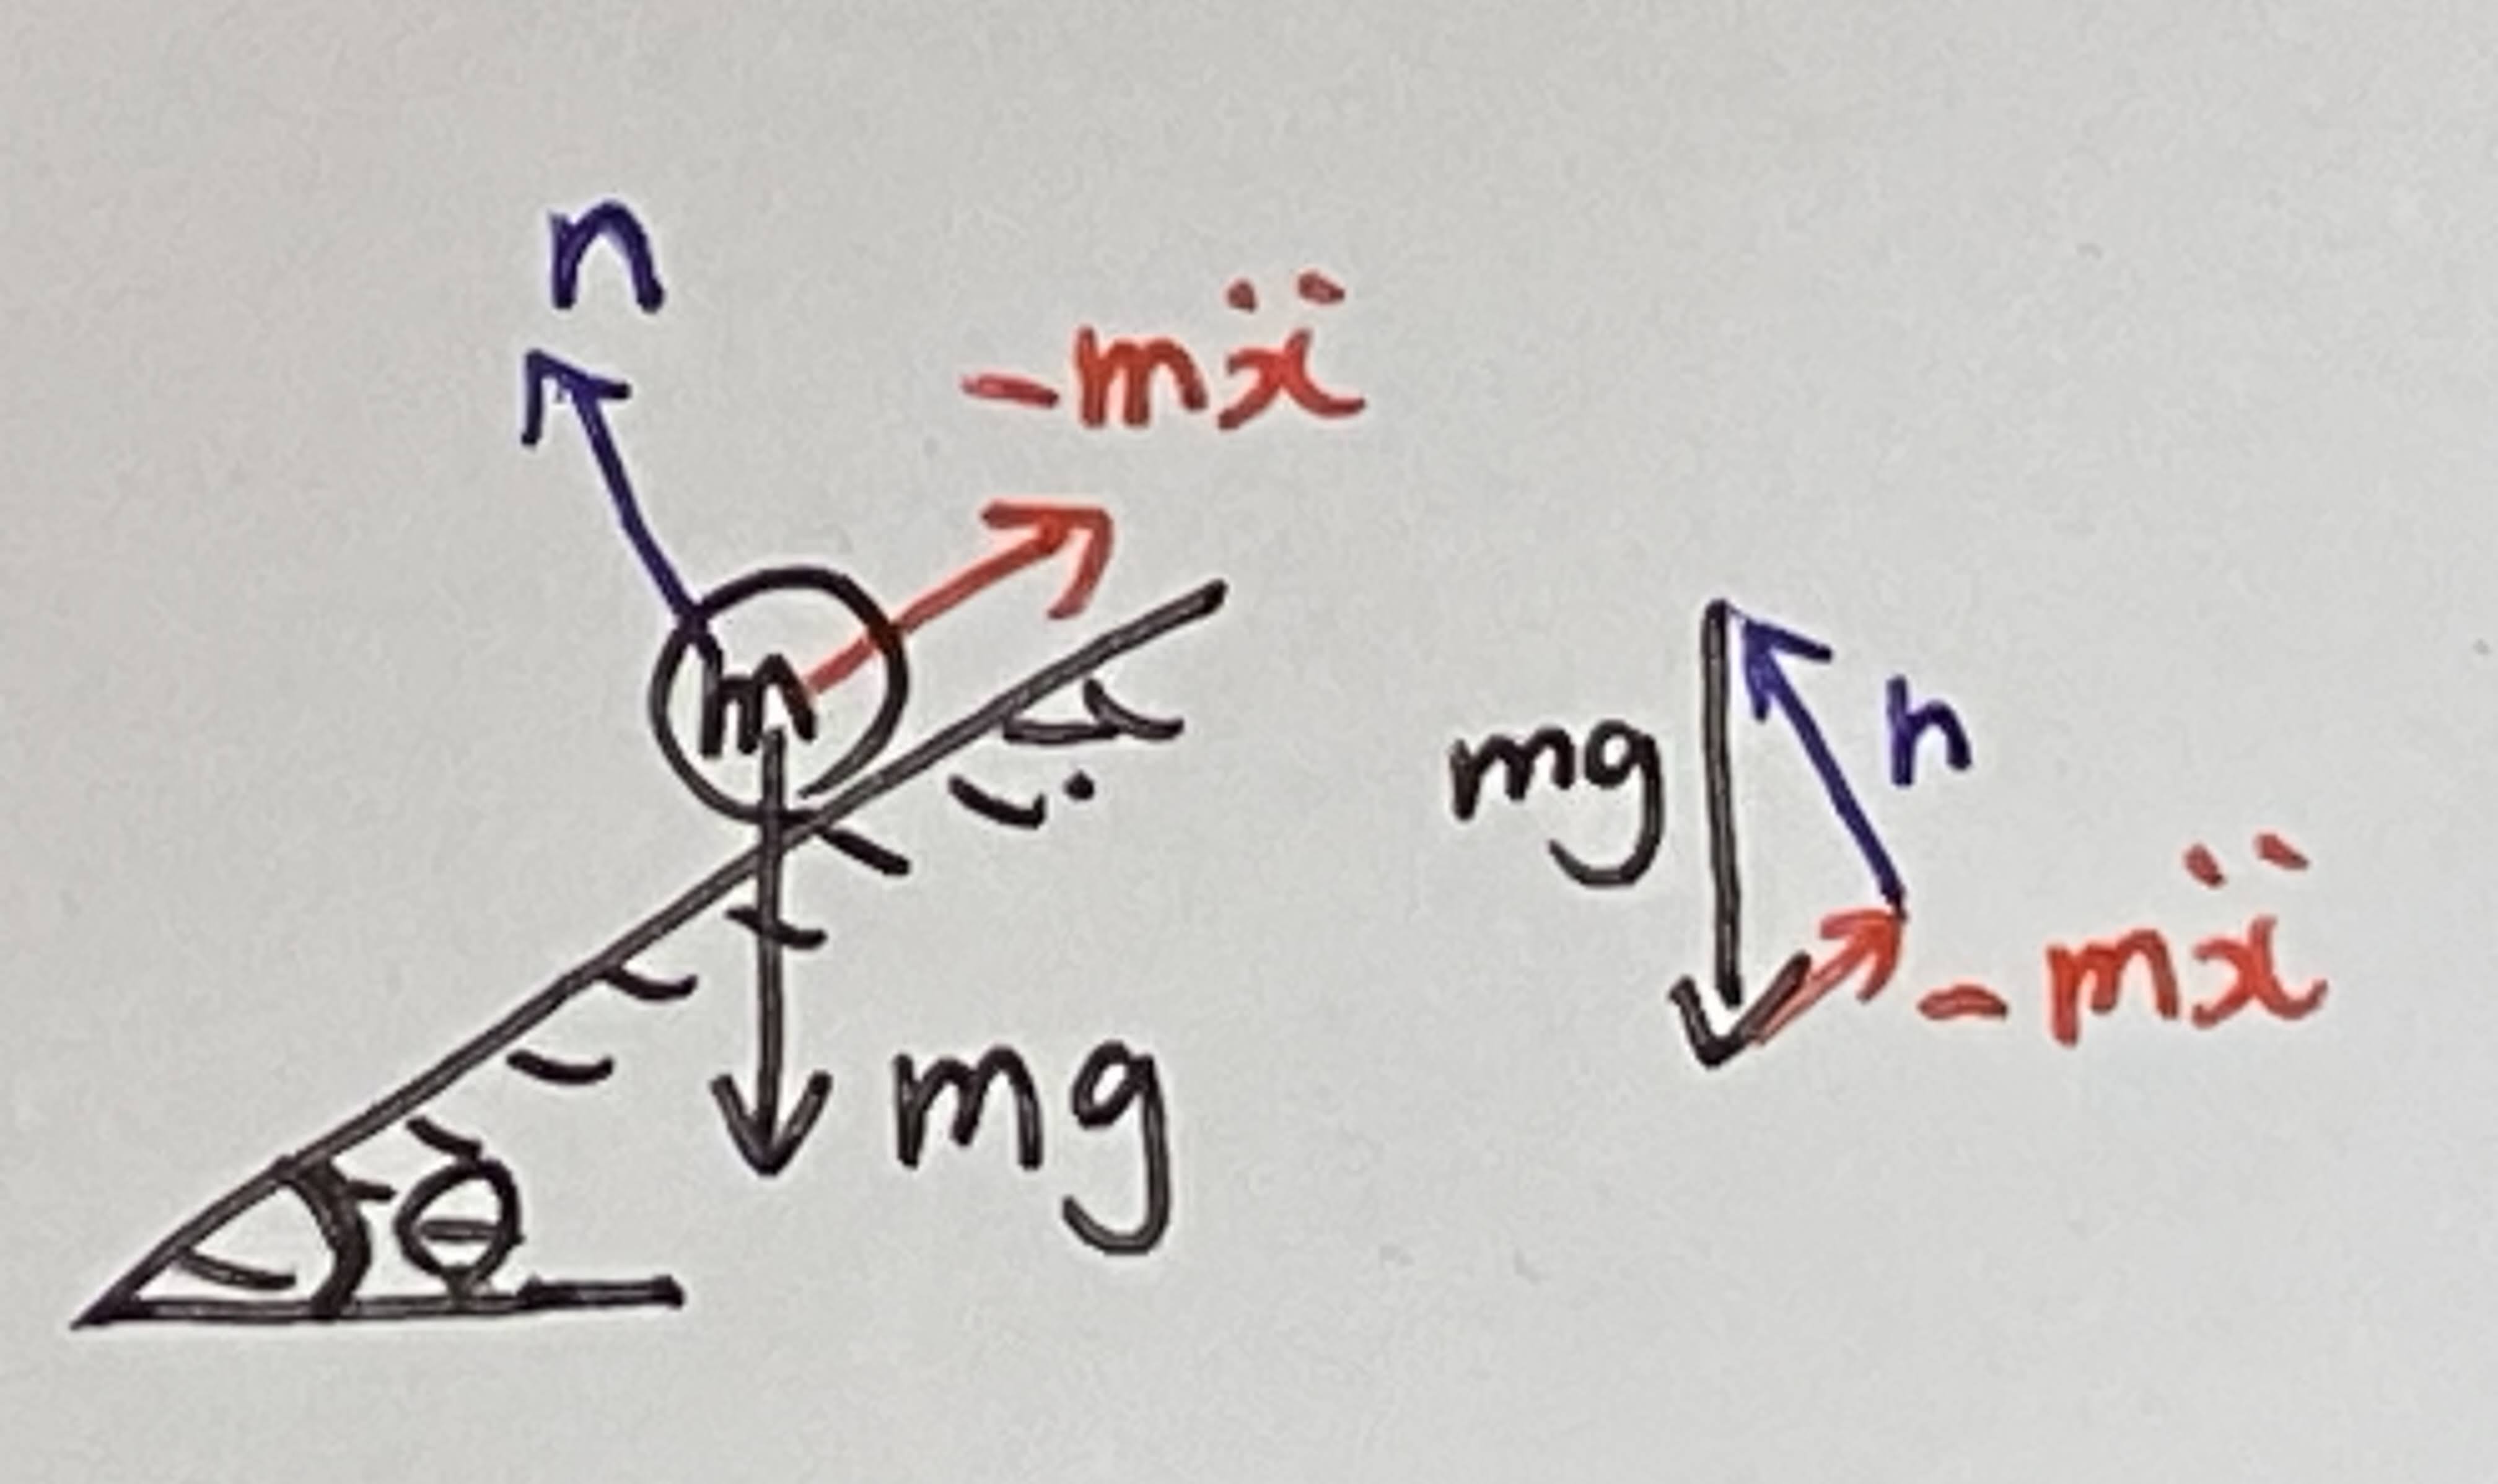 n
-mẍ
m
mg
θ
mg
n
-mẍ